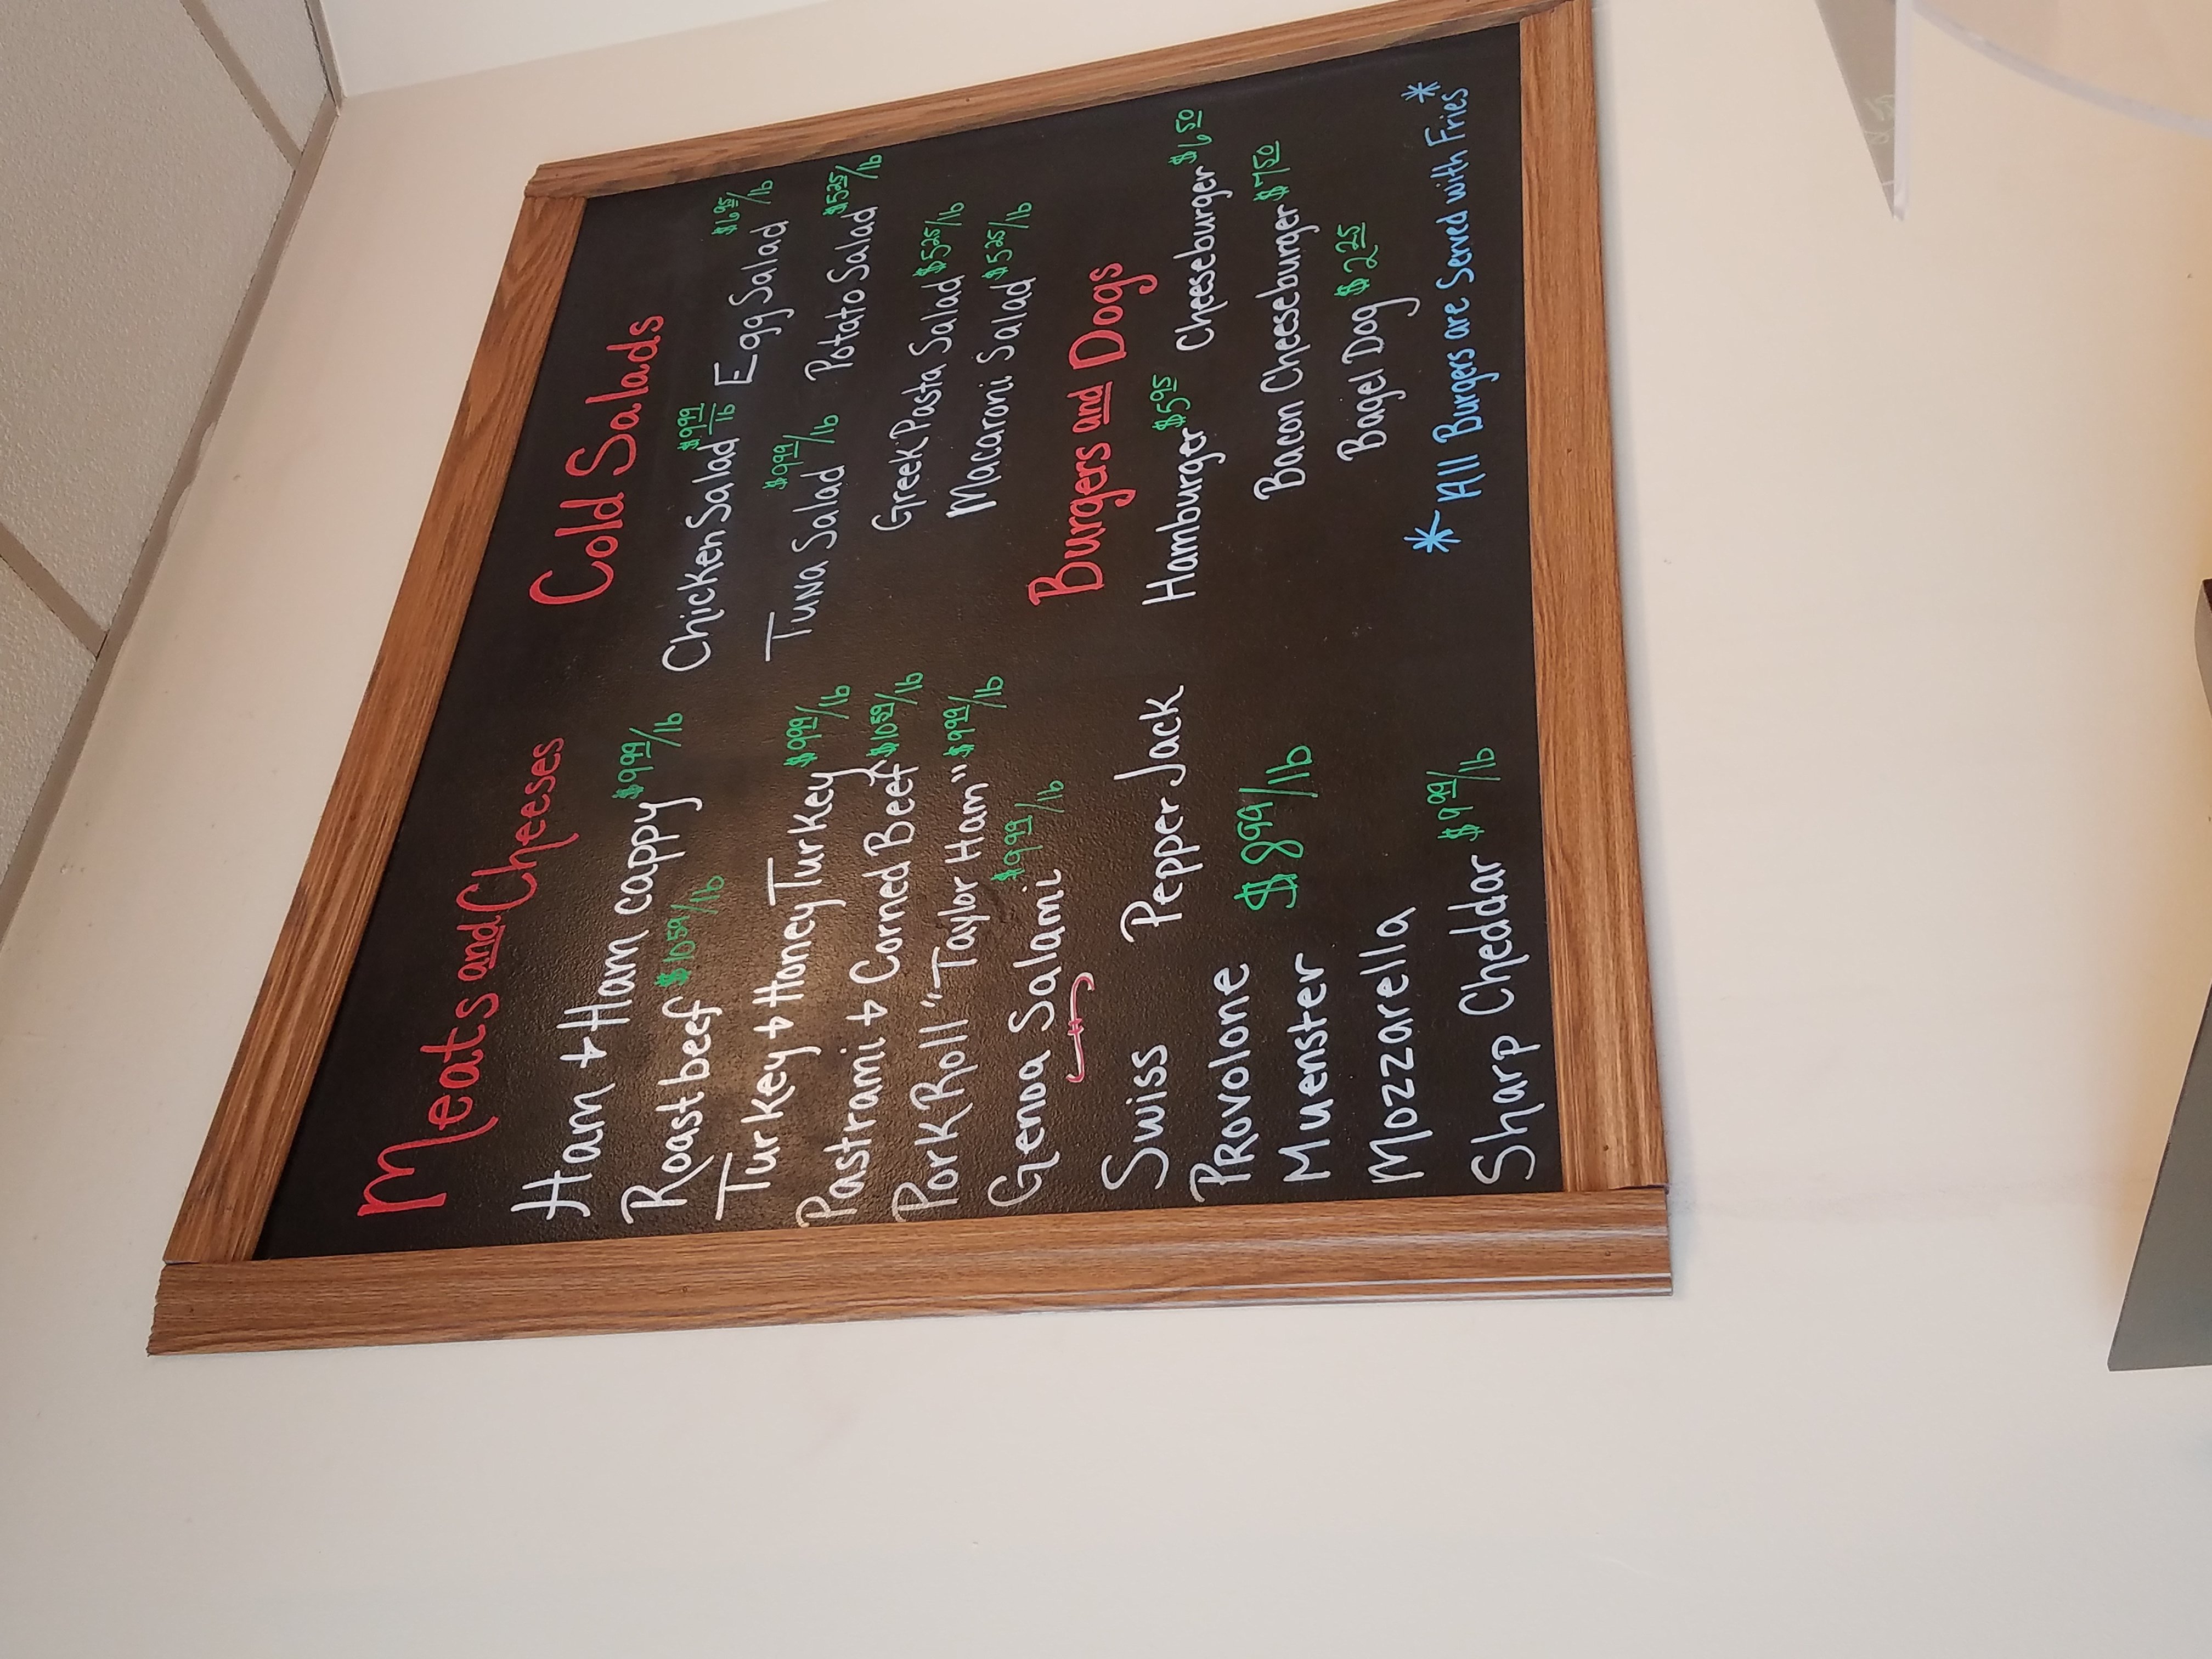 Meats and Cheeses
Ham + Ham cappy $9.99/lb
Roast beef $10.59/lb
Turkey + Honey Turkey $9.99/lb
Pastrami + Corned Beef $10.59/lb
Pork Roll "Taylor Ham" $9.99/lb
Genoa Salami $9.99/lb
Swiss Pepper Jack
Provolone
Muenster $8.99/lb
Mozzarella
Sharp Cheddar $9.99/lb
Cold Salads
Chicken Salad $9.99/lb Egg Salad $6.95/lb
Tuna Salad $9.99/lb Potato Salad $5.25/lb
Greek Pasta Salad $5.25/lb
Macaroni Salad $5.25/lb
Burgers and Dogs
Hamburger $5.95 Cheeseburger $6.50
Bacon Cheeseburger $7.50
Bagel Dog $2.25
* All Burgers are Served with Fries *